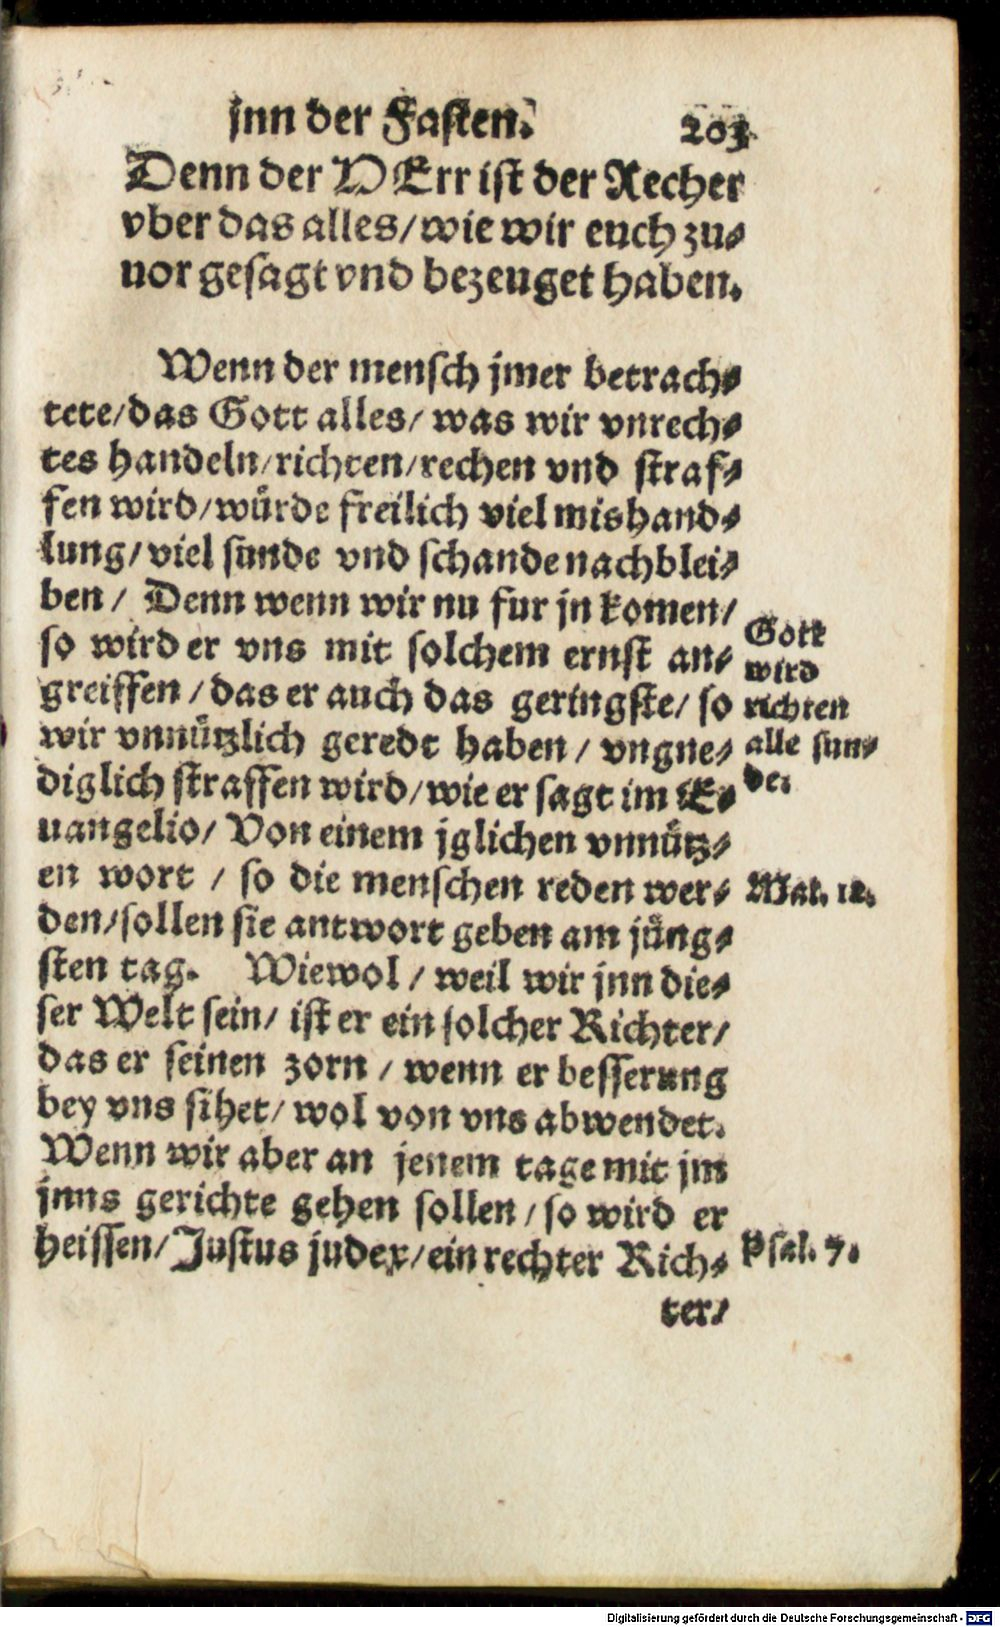 jnn der Fasten. 203
Denn der HErr ist der Recher
vber das alles/ wie wir euch zu⸗
uor gesagt vnd bezeuget haben.
Wenn der mensch jmer betrach⸗
tete/ das Gott alles/ was wir vnrech⸗
tes handeln/ richten/ rechen vnd straf⸗
fen wird/ würde freilich viel mishand⸗
lung/ viel sunde vnd schande nachblei⸗
ben/ Denn wenn wir nu fur jn komen/
so wird er vns mit solchem ernst an⸗
greiffen/ das er auch das geringste/ so
wir vnnützlich geredt haben/ vngne⸗
diglich straffen wird/ wie er sagt im E⸗
uangelio/ Von einem jglichen vnnütz⸗
en wort/ so die menschen reden wer⸗
den/ sollen sie antwort geben am jüng⸗
sten tag. Wiewol/ weil wir jnn die⸗
ser Welt sein/ ist er ein solcher Richter/
das er seinen zorn/ wenn er besserung
bey vns sihet/ wol von vns abwendet.
Wenn wir aber an jenem tage mit jm
jnns gerichte gehen sollen/ so wird er
heissen/ Justus judex/ ein rechter Rich⸗
ter/
Gott
wird
richten
alle sun⸗
de.
Mat. 12.
Psal. 7.
Digitalisierung gefördert durch die Deutsche Forschungsgemeinschaft - DFG